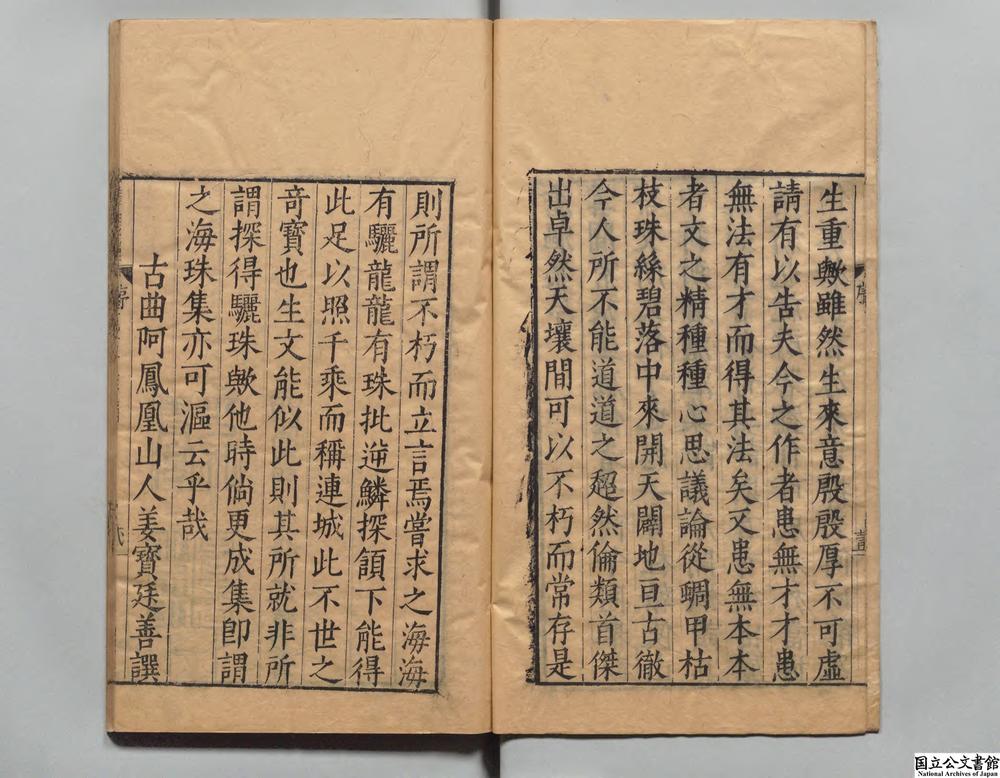 生重歟雖然生來意殷殷厚不可虛
請有以告夫今之作者患無才才患
無法有才而得其法矣又患無本本
者文之精種種心思議論從蜩甲枯
枝珠絲碧落中來開天闢地亘古徹
今人所不能道道之超然倫類首傑
出卓然天壤間可以不朽而常存是
序
則所謂不朽而立言焉嘗求之海海
有驪龍龍有珠批逆鱗探頷下能得
此足以照千乘而稱連城此不世之
奇寶也生文能似此則其所就非所
謂探得驪珠歟他時倘更成集卽謂
之海珠集亦可漚云乎哉
古曲阿鳳凰山人姜寶廷善譔
序
国立公文書館
National Archives of Japan